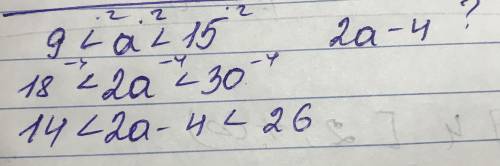 9 < a < 15 ·2 ·2 ·2 2a - 4 ?
18 -4 < 2a -4 < 30 -4
14 < 2a - 4 < 26